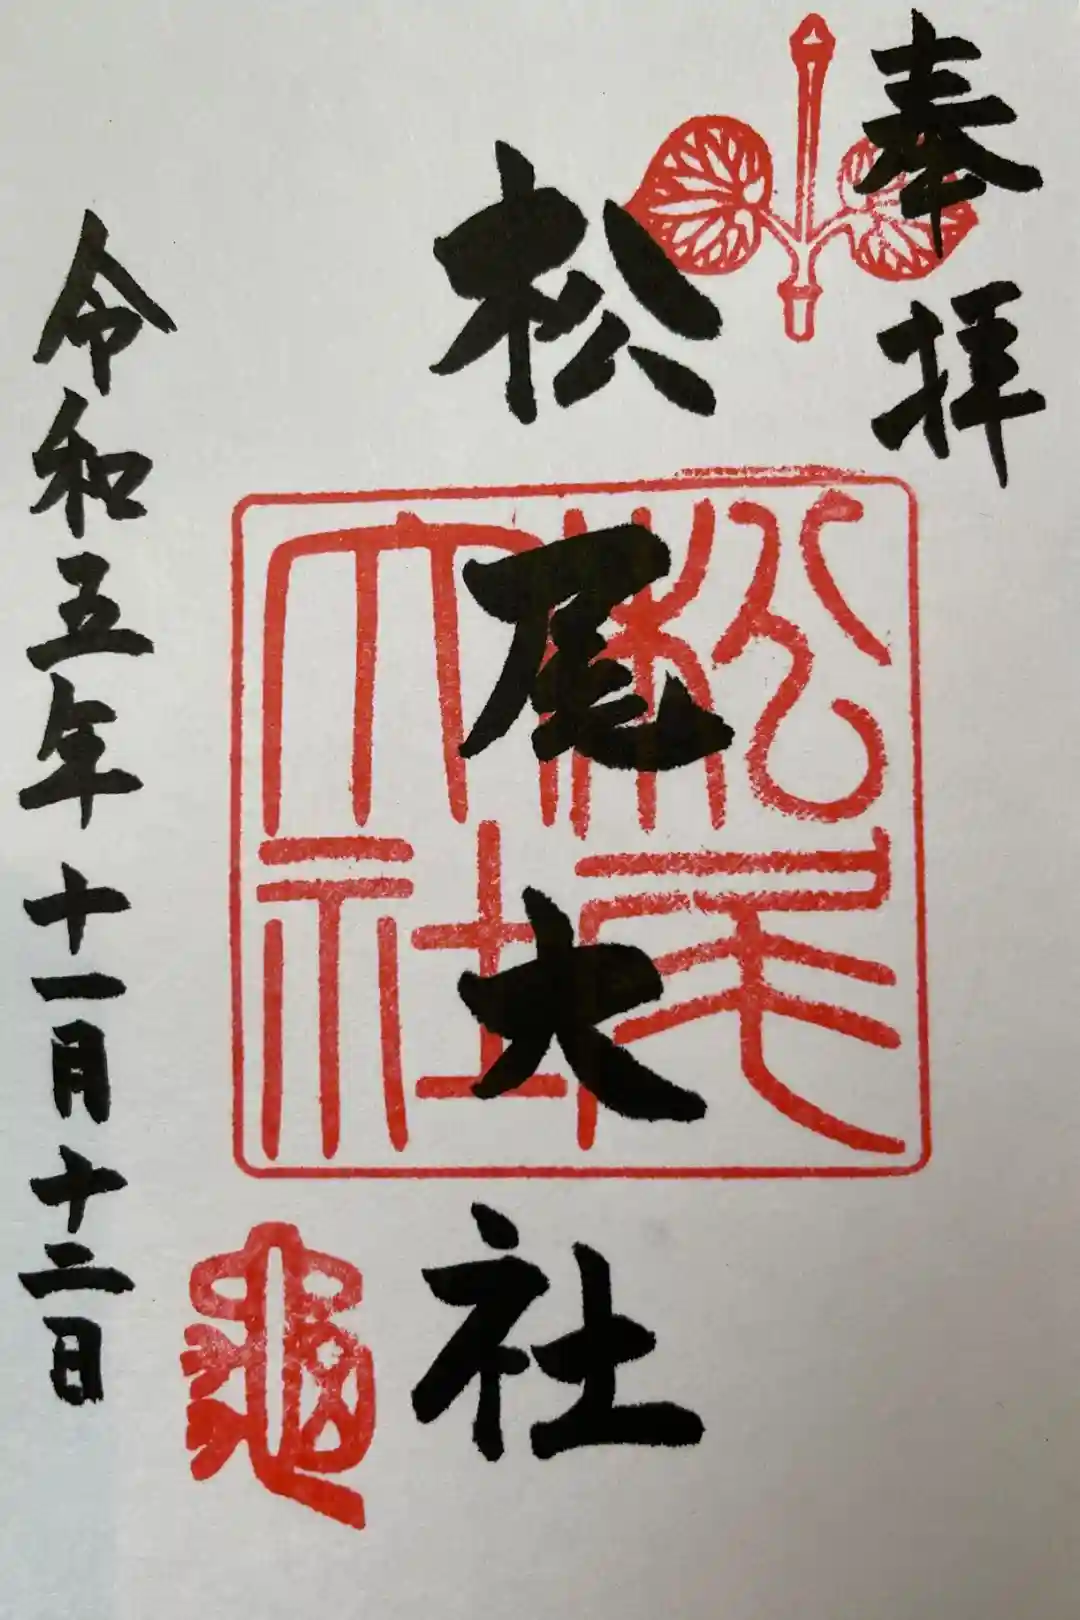 奉拝
松尾大社
松尾大社
龜
令和五年十一月十二日